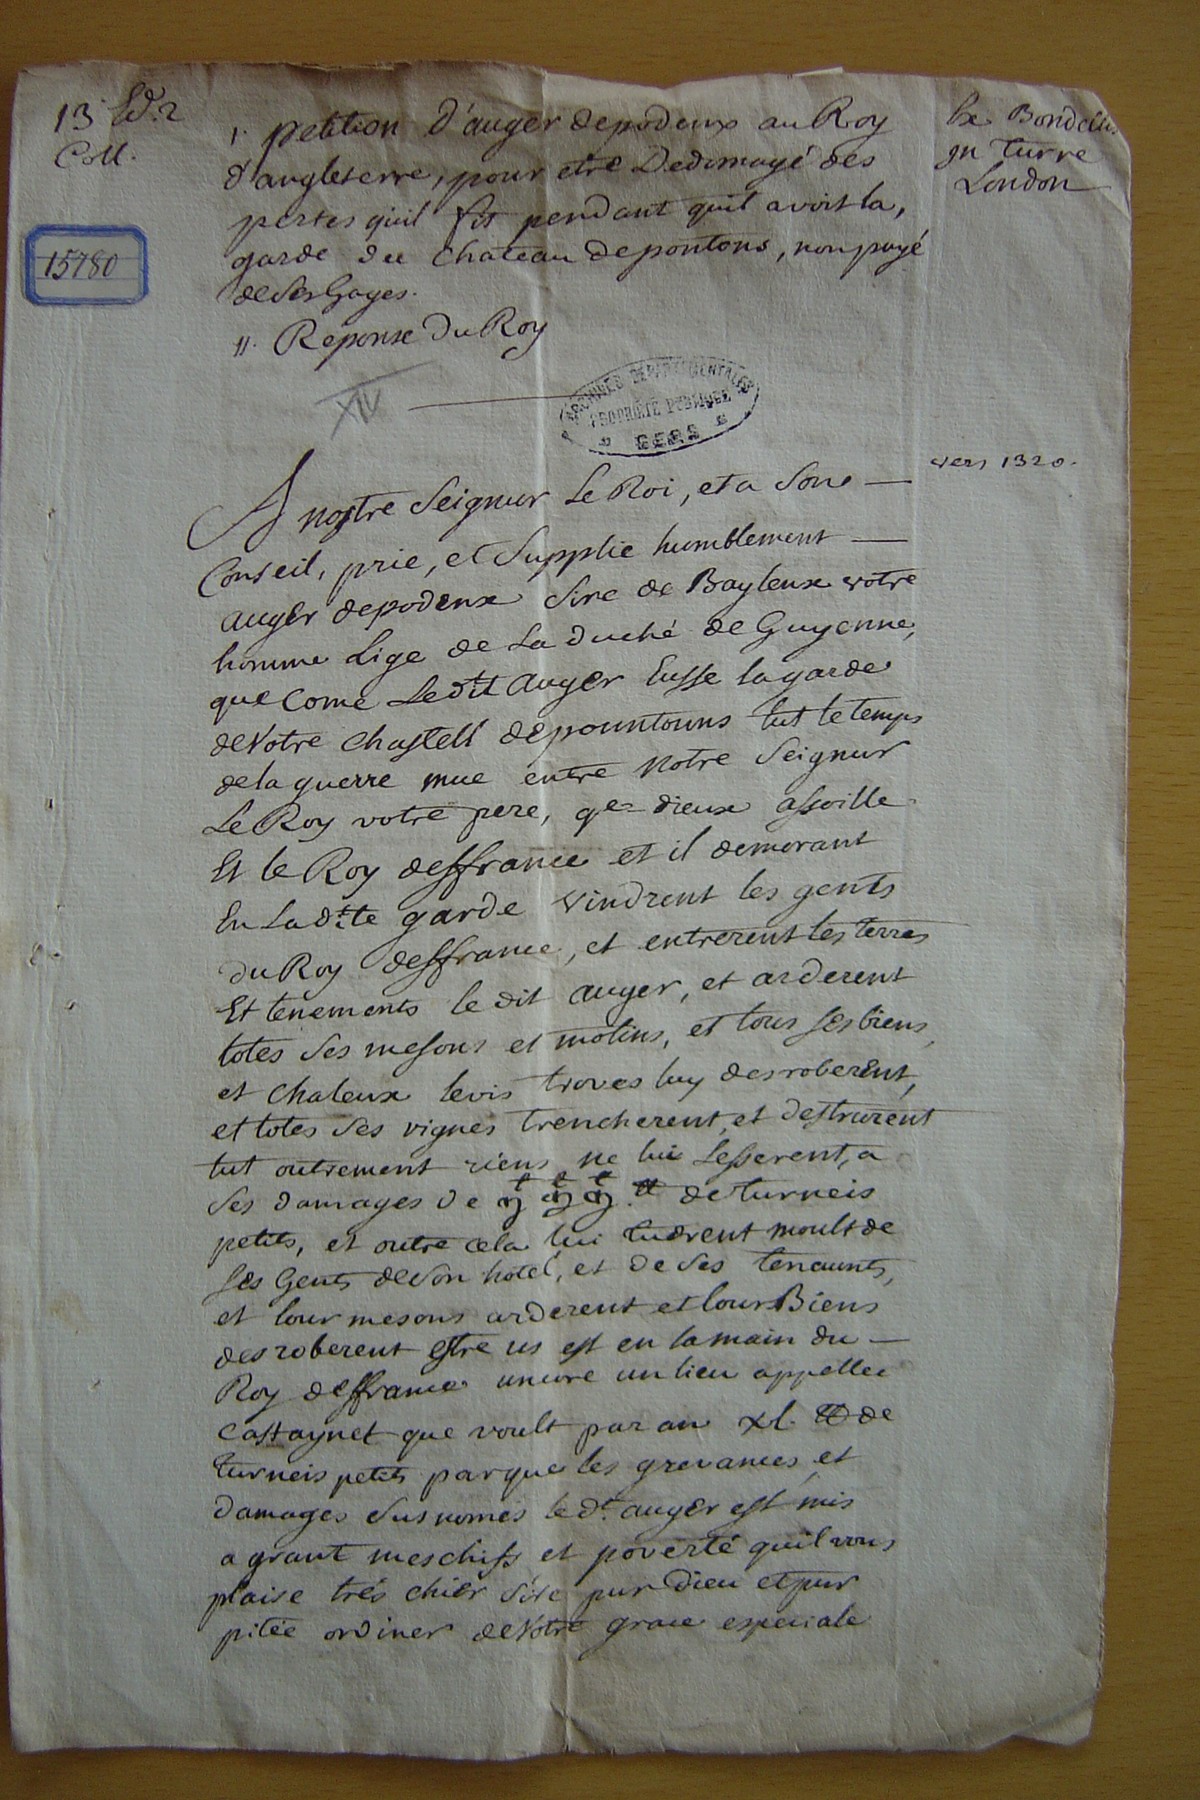 13 Ed. 2
Coll.
15780
1. petition d'auger depodenx au Roy
d'angleterre, pour etre Dedomagé des
pertes quil fit pendant quil avoit la,
garde du Chateau depontons, non payé
de ses Gages.
11. Reponse Du Roy
Ex Bondellis
in Turre
London
XIV
ARCHIVES DEPARTEMENTALES
PROPRIÉTÉ PUBLIQUE
GERS
vers 1320.
A nostre Seignur Le Roi, et a Sone
Conseil, prie, et Supplie humblement
auger depodenx Sire de Baylenx votre
homme Lige de La duché de Guyenne,
que Come Ledit Auger Eusse la garde
de Votre Chastell depountouns tut le temps
de la guerre mue entre Notre Seignur
Le Roy votre pere, qe dieux assoille
Et le Roy deffrance et il demorant
En La dte garde vindrent les gents
du Roy deffrance, et entrerent les terres
Et tenements le dit auger, et arderent
totes Ses mesons et molins, et tous Ses biens,
et Chateux levis troves luy desroberent,
et totes Ses vignes trencherent, et destrurent
tut outrement riens ne lui Lesserent, a
Ses damages de de turneis
petits, et outre cela lui tuerent moult de
Ses Gents de son hotel, et de Ses tenaunts,
et lour mesons arderent et lours Biens
desroberent estre us est en la main du
Roy deffrance uncore un lieu appellee
Castaynet que voult par an xl. tt de
turneis petits par que les grevances et
damages Susnomes le dt. auger est mis
a graunt meschiff et poverté quil vous
plaise trés chier Sire pur Dieu et pur
pitée ordiner de Votre grace especiale